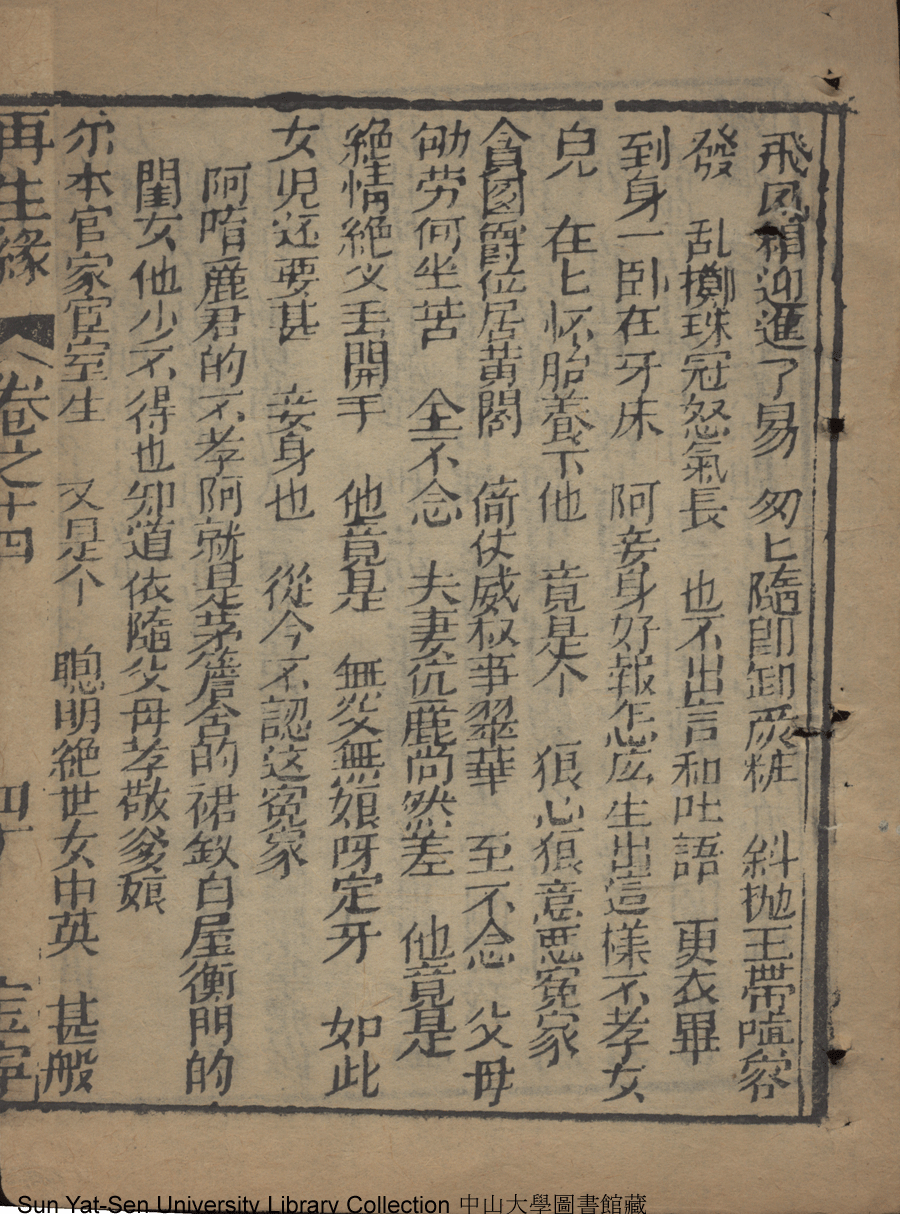 飛凤箱迎進了易　匆匕隨卽卸戾粧　斜抛王帶嗑容
發　乱擲珠冠怒氣長　也不出言和吐語　更衣畢
到身一臥在牙床　阿妾身好報怎庅生出這樣不孝女
皃　在匕怀胎養下他　竟是个　狠心狼意悪寃家
貪圖爵位居黃閣　倚仗威叔事翠華　至不念　父母
劬劳何坐苦　全不念　夫妻伉麗尚然差　他竟是
絶情絶父丢開手　他竟是　無父無娘呀定牙　如此
女児还要甚　妾身也　從今不認这寃家
阿唷麗君的不孝阿就是茅簷舍的裙釵白屋衡門的
閨女他少不得也知道依隨父母孝敬爹娘
尔本官家宦室生　又是个　聰明絶世女中英　甚般
再生緣　卷之十四
Sun Yat-Sen University Library Collection 中山大學圖書館藏